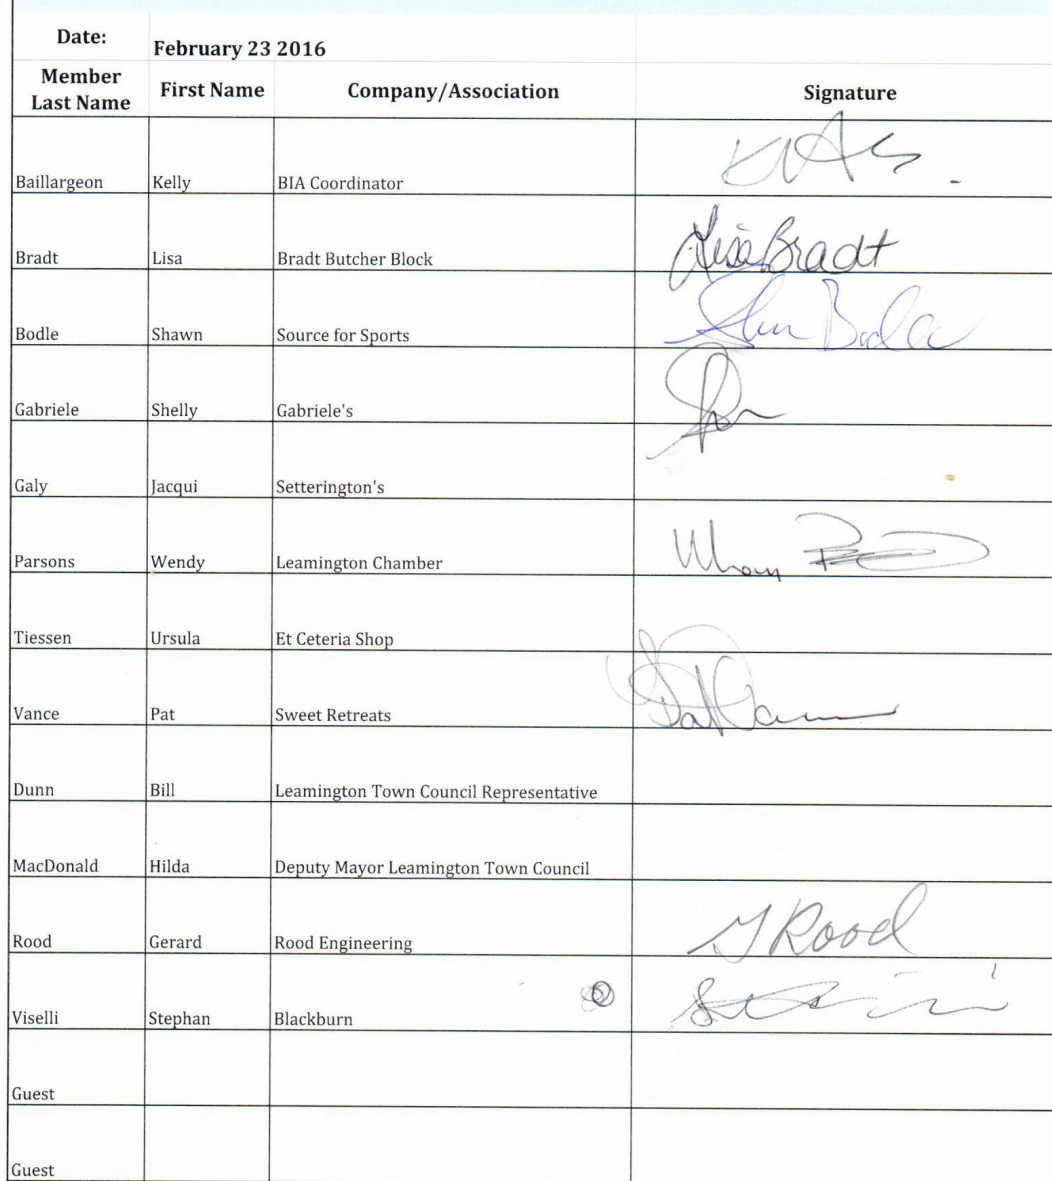 Date: February 23 2016
Member Last Name First Name Company/Association Signature
Baillargeon Kelly BIA Coordinator
Bradt Lisa Bradt Butcher Block Lisa Bradt
Bodle Shawn Source for Sports
Gabriele Shelly Gabriele's
Galy Jacqui Setterington's
Parsons Wendy Leamington Chamber
Tiessen Ursula Et Ceteria Shop
Vance Pat Sweet Retreats
Dunn Bill Leamington Town Council Representative
MacDonald Hilda Deputy Mayor Leamington Town Council
Rood Gerard Rood Engineering G Rood
Viselli Stephan Blackburn
Guest
Guest